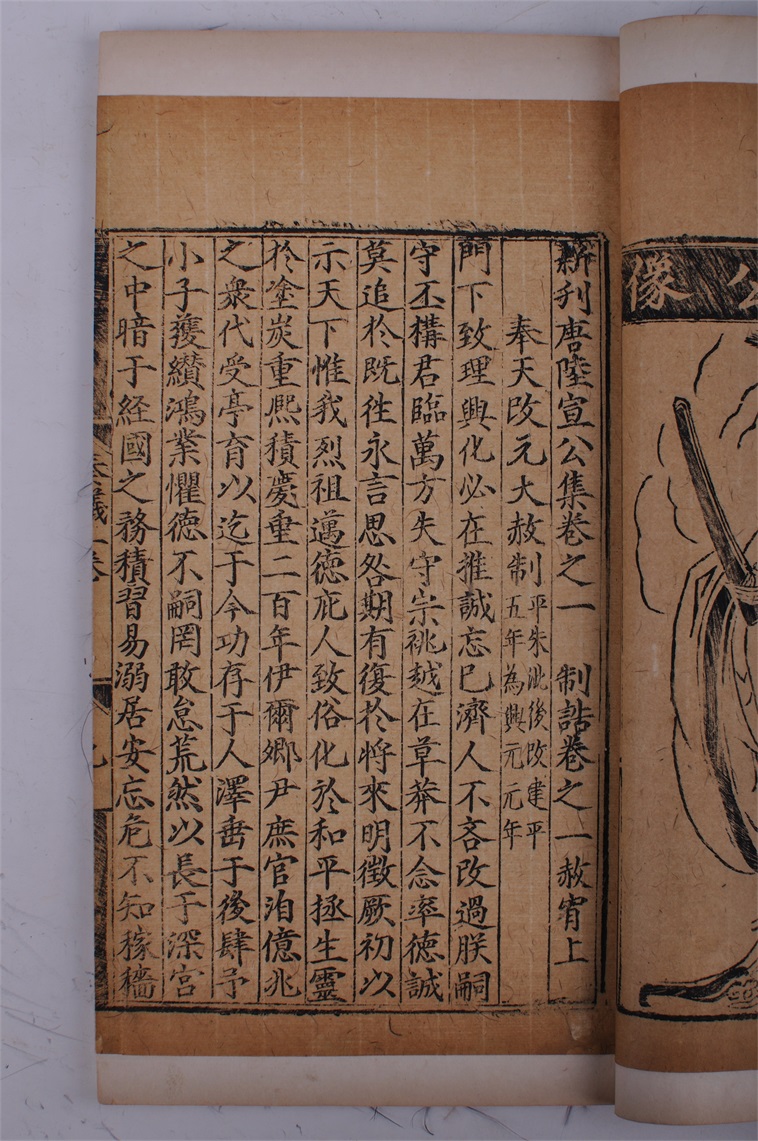 新刋唐陸宣公集卷之一　制誥卷之一赦宥上
奉天改元大赦制平朱泚後改建平
五年為興元元年
門下致理興化必在推誠忘巳濟人不吝改過朕嗣
守丕構君臨萬方失守宗祧越在草莽不念率德誠
莫追於既徃永言思咎期有復於將來明徵厥初以
示天下惟我烈祖邁德庇人致俗化於和平拯生靈
於塗炭重熈積慶垂二百年伊爾郷尹庶官洎億兆
之衆代受亭育以迄于今功存于人澤垂于後肆予
小子獲纉鴻業懼德不嗣罔敢怠荒然以長于深宮
之中暗于経國之務積習易溺居安忘危不知稼穡
公像